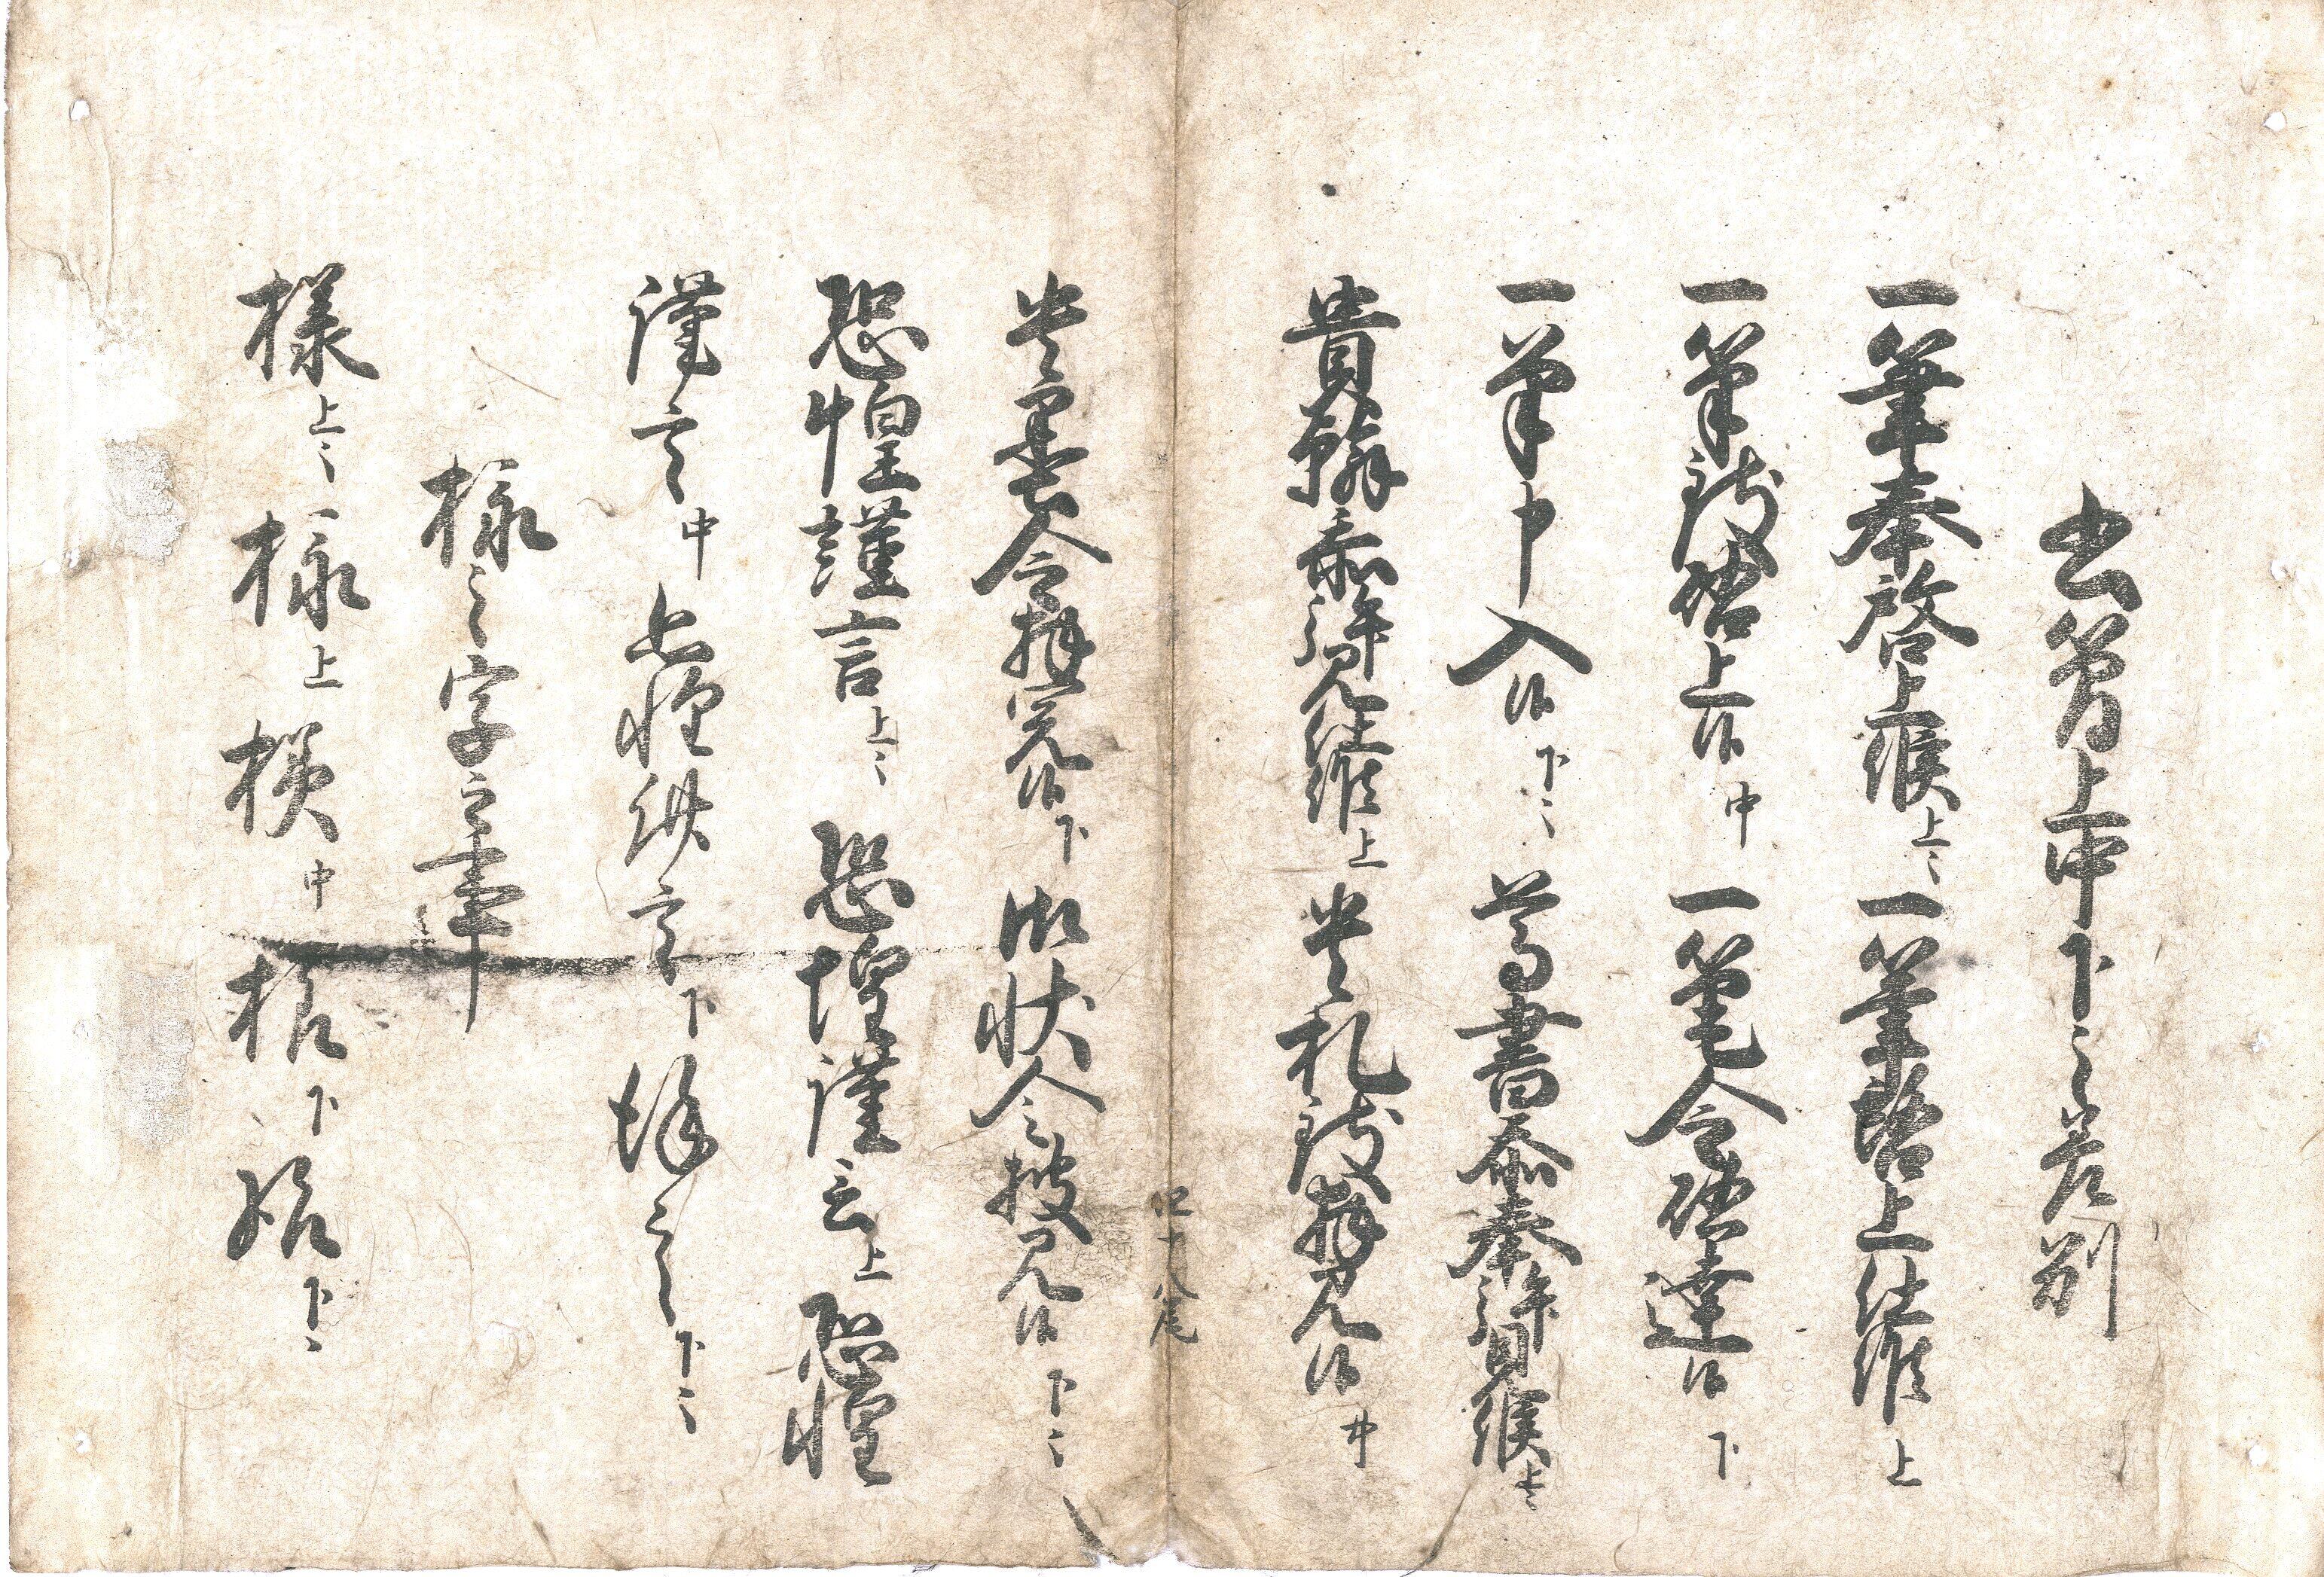 書簡上中下之差別
一筆奉啓上候上々一筆啓上仕候上
一筆致啓上候中一筆令啓達候下
一筆申入候下々尊書忝奉拝見候上々
貴翰忝拝見仕候上貴札致拝見候中
貴墨令拝覧候下御状令披見候下々
恐惶謹言上々恐惶謹言上恐惶
謹言中恐惶謹言下恐々下々
様之字之事
様上々様上様中様下様下々